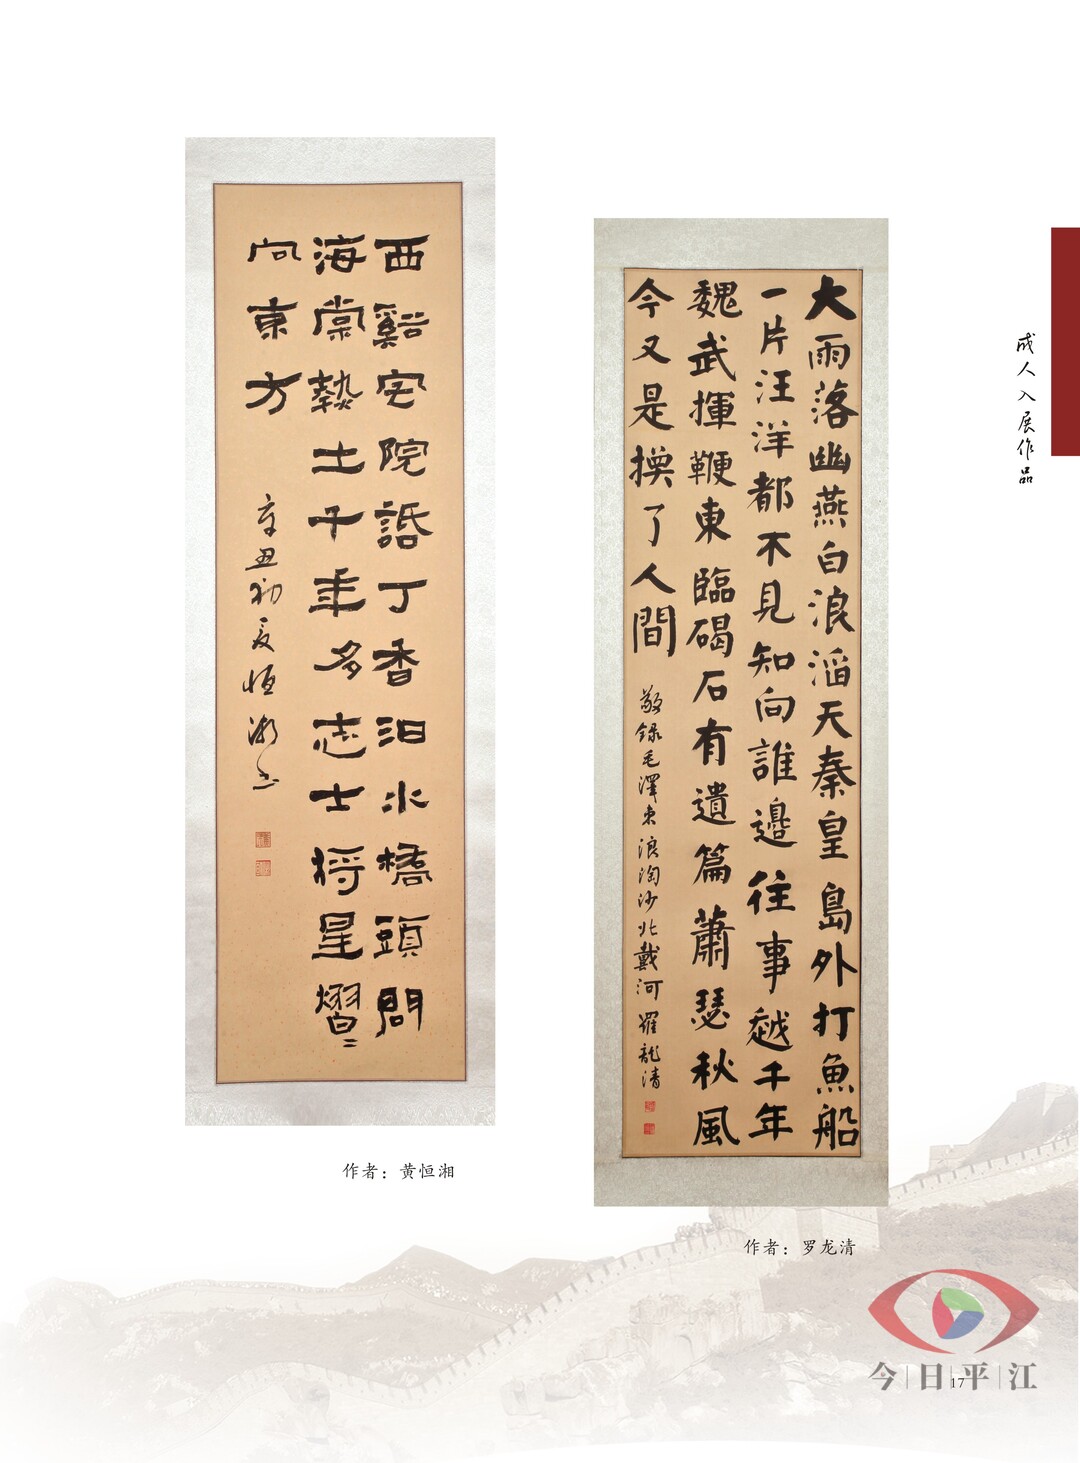 西谿宅院話丁香汨水橋頭問
海棠熱土千年多志士将星熠〻
向東方
辛丑初夏恒湘书
作者：黄恒湘
大雨落幽燕白浪滔天秦皇島外打魚船
一片汪洋都不見知向誰邊往事越千年
魏武揮鞭東臨碣石有遺篇蕭瑟秋風
今又是換了人間
敬録毛澤东浪淘沙北戴河 羅龍清
作者：罗龙清
成人入展作品
今日平江
17